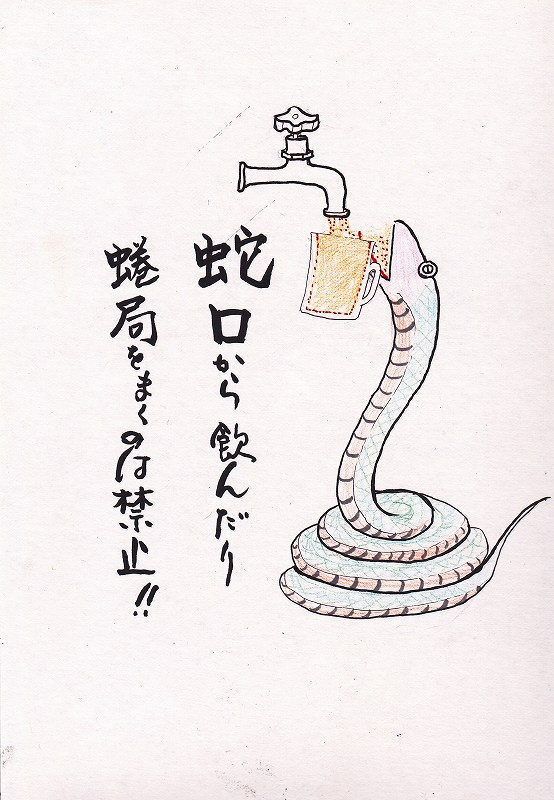 蛇口から飲んだり
蜷局をまくのは禁止!!